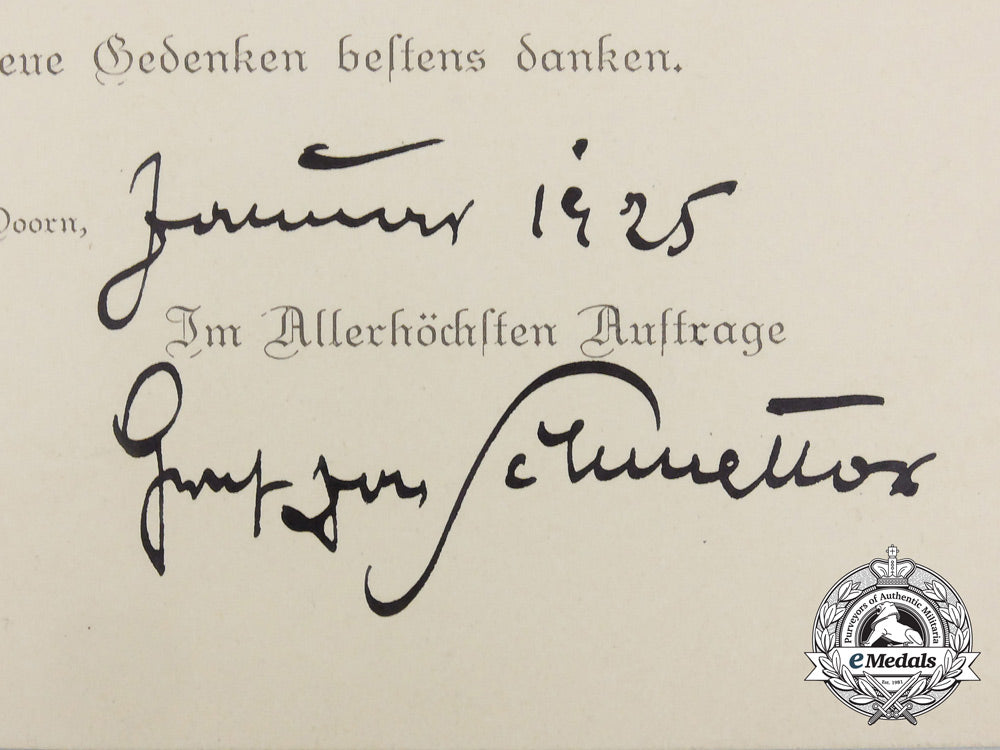 eue Gedenken bestens danken.
Doorn, Januar 1925
Im Allerhöchsten Auftrage
Graf von Schmettow
Purveyors of Authentic Militaria
eMedals
Est. 1981